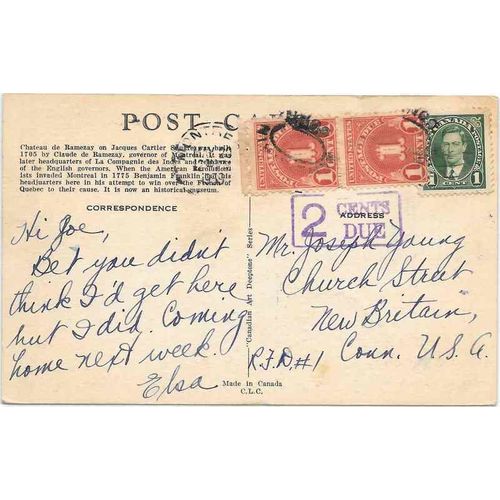 POST CA
Chateau de Ramezay on Jacques Cartier built
1705 by Claude de Ramezay, governor of Montreal. It was
later headquarters of La Compagnie des Indes and
of the English governors. When the American
ists invaded Montreal in 1775 Benjamin Franklin his
headquarters here in his attempt to win over the French of
Quebec to their cause. It is now an historical museum.
CORRESPONDENCE
ADDRESS
2 CENTS
DUE
1
1
CANADA
1 CENT 1
Hi Joe,
Bet you didn't
think I'd get here
but I did. Coming
home next week.
Elsa
"Canadian Art Deeptone" Series
Mr. Joseph Young
Church Street
New Britain,
R.F.D. #1 Conn. U.S.A.
Made in Canada
C.L.C.